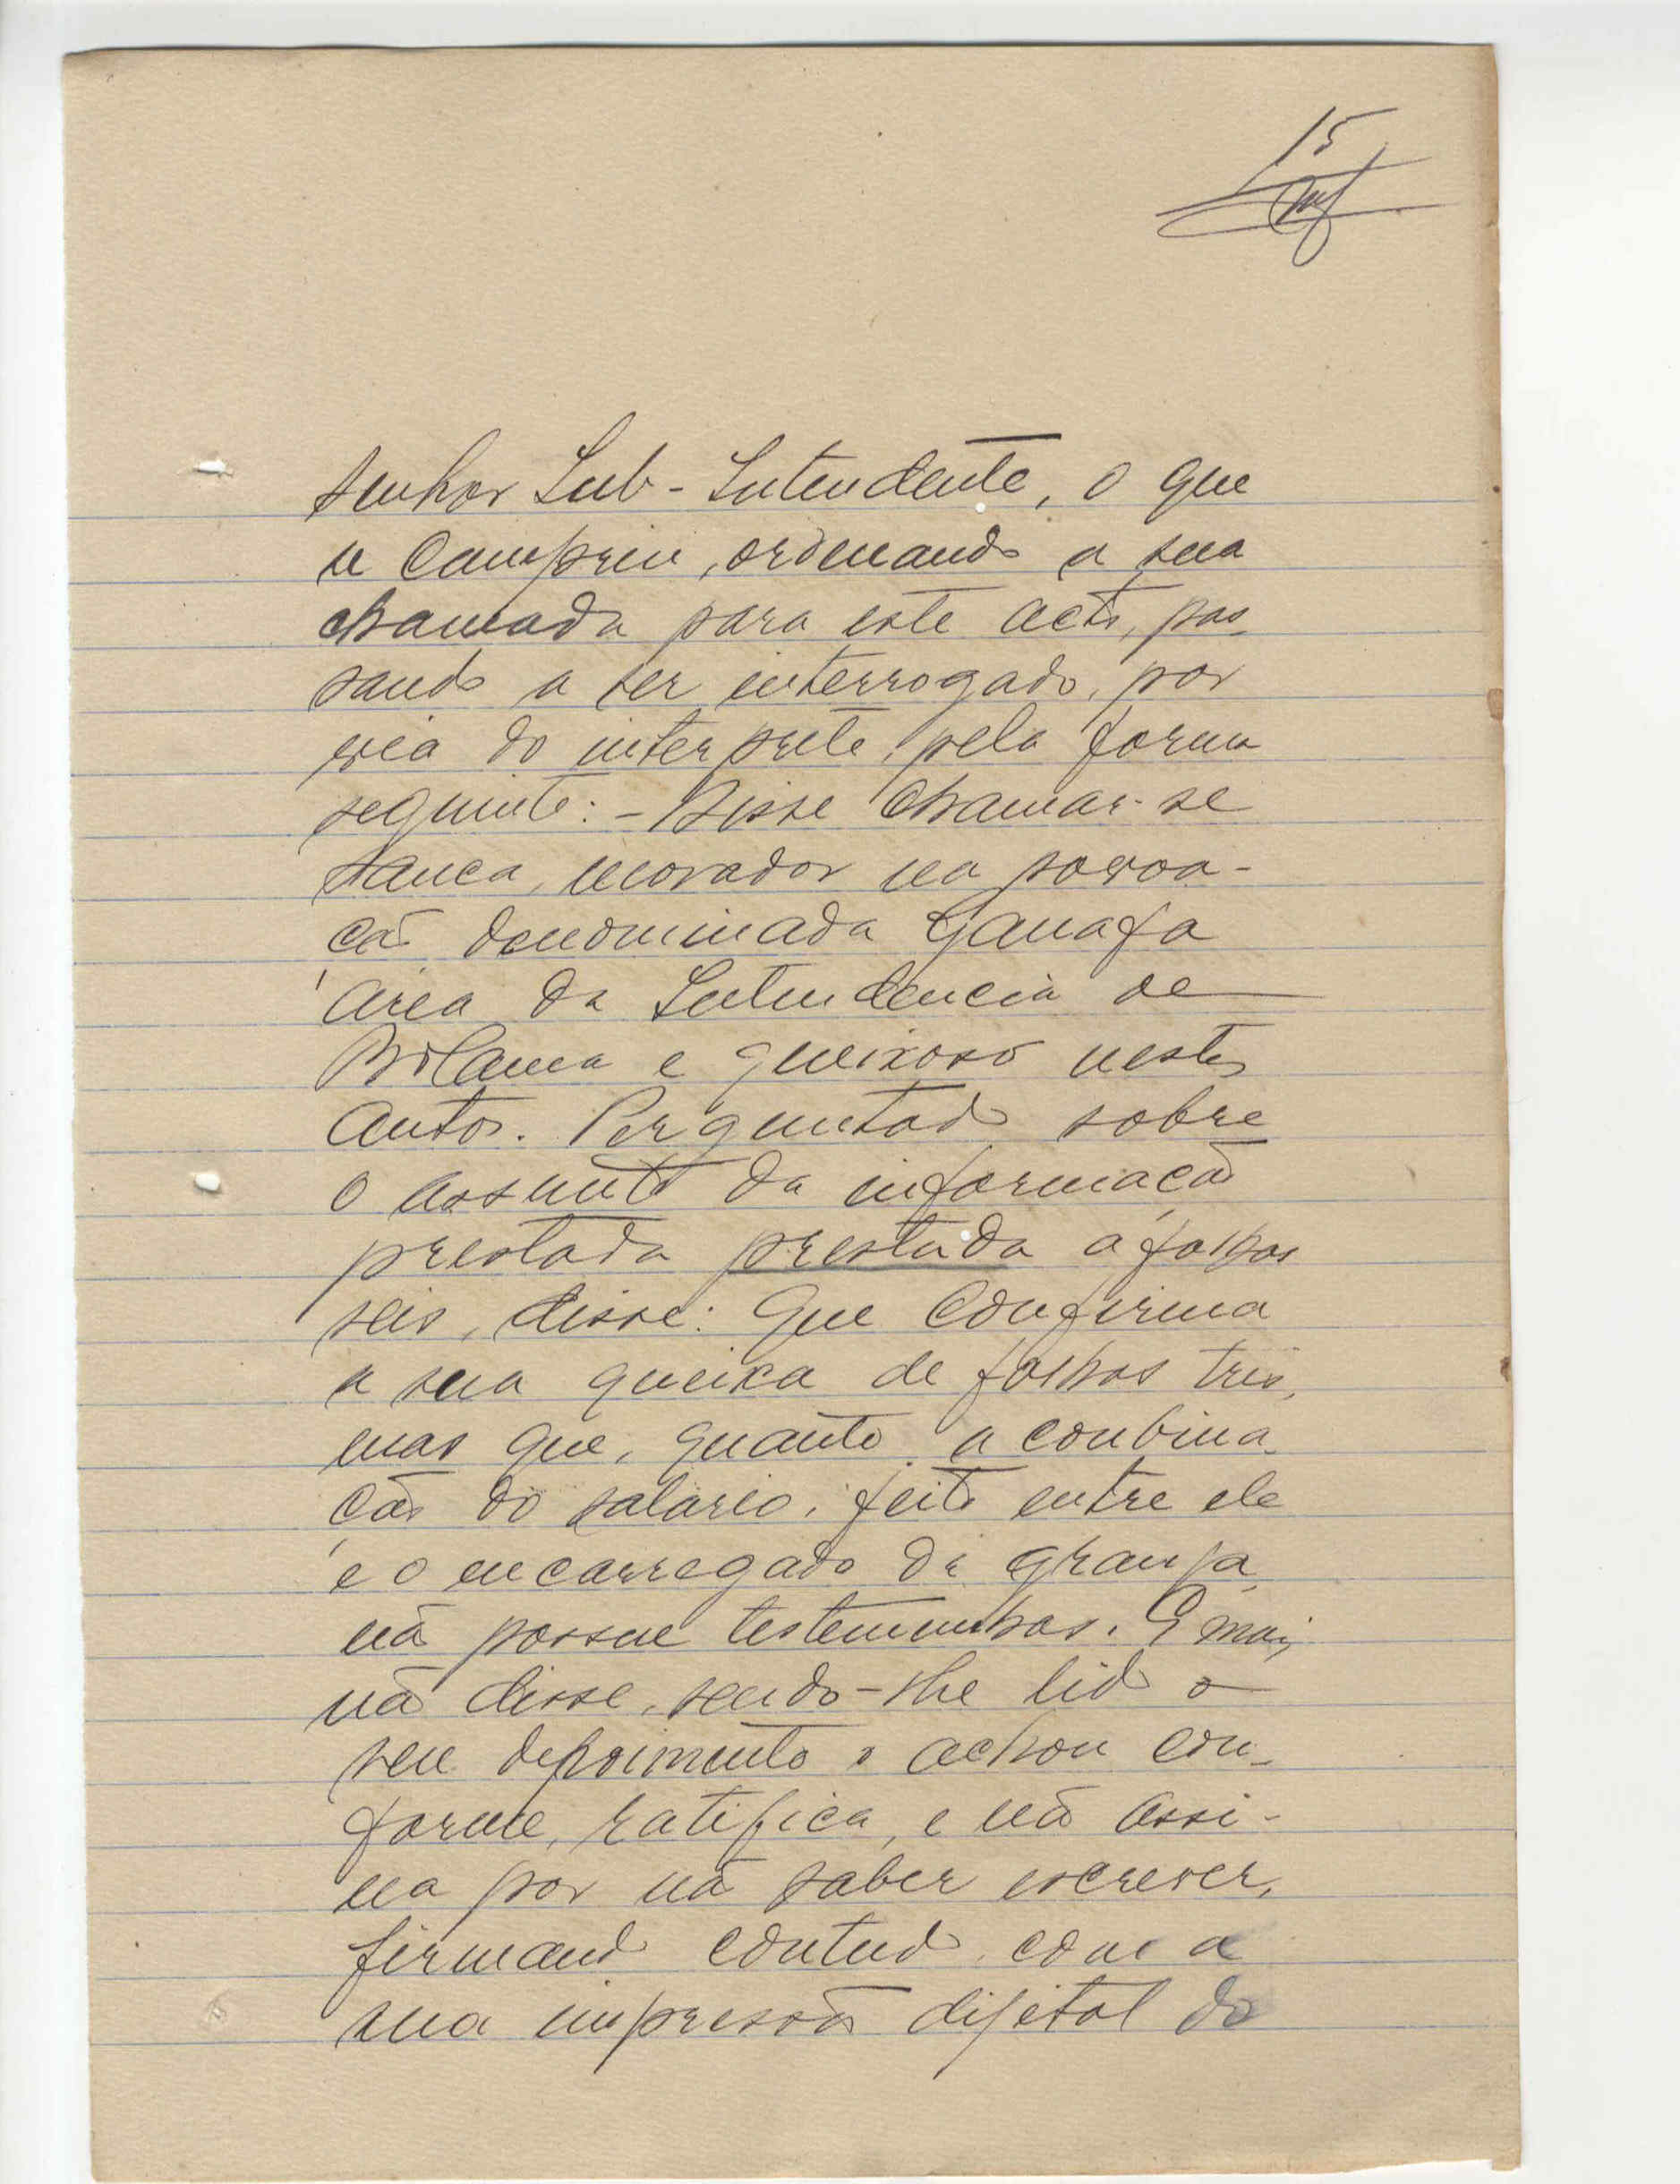 15
senhor Sub-Intendente, o que
se cumpriu, ordenando a sua
chamada para este acto, pas-
sando a ser interrogado, por
via do interprete, pela forma
seguinte: - Disse chamar-se
morador na povoa-
ção denominada Ganafa
área da Intendencia de
Bolama e queixoso nestes
autos. Perguntado sobre
o assunto da informação
prestada prestada a folhas
seis, disse: Que confirma
a sua queixa de folhas três,
mas que, quanto a conbina-
ção do salário, feito entre ele
e o encarregado da granja,
não possue testemunhas. E mais
não disse, sendo-lhe lido o
seu depoimento o achou con-
forme, ratifica, e não assi-
na por não saber escrever,
firmando contudo com a
sua impressão dijital do